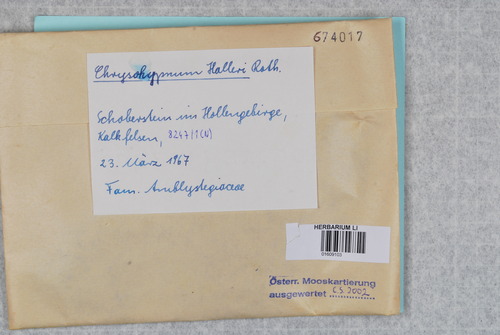 674017
Chrysohypnum Halleri Roth.
Schoberstein im Höllengebirge,
Kalkfelsen, 8247/1(N)
23. März 1967
Fam. Amblystegiaceae
HERBARIUM LI
01609103
Österr. Mooskartierung
ausgewertet CS 2002